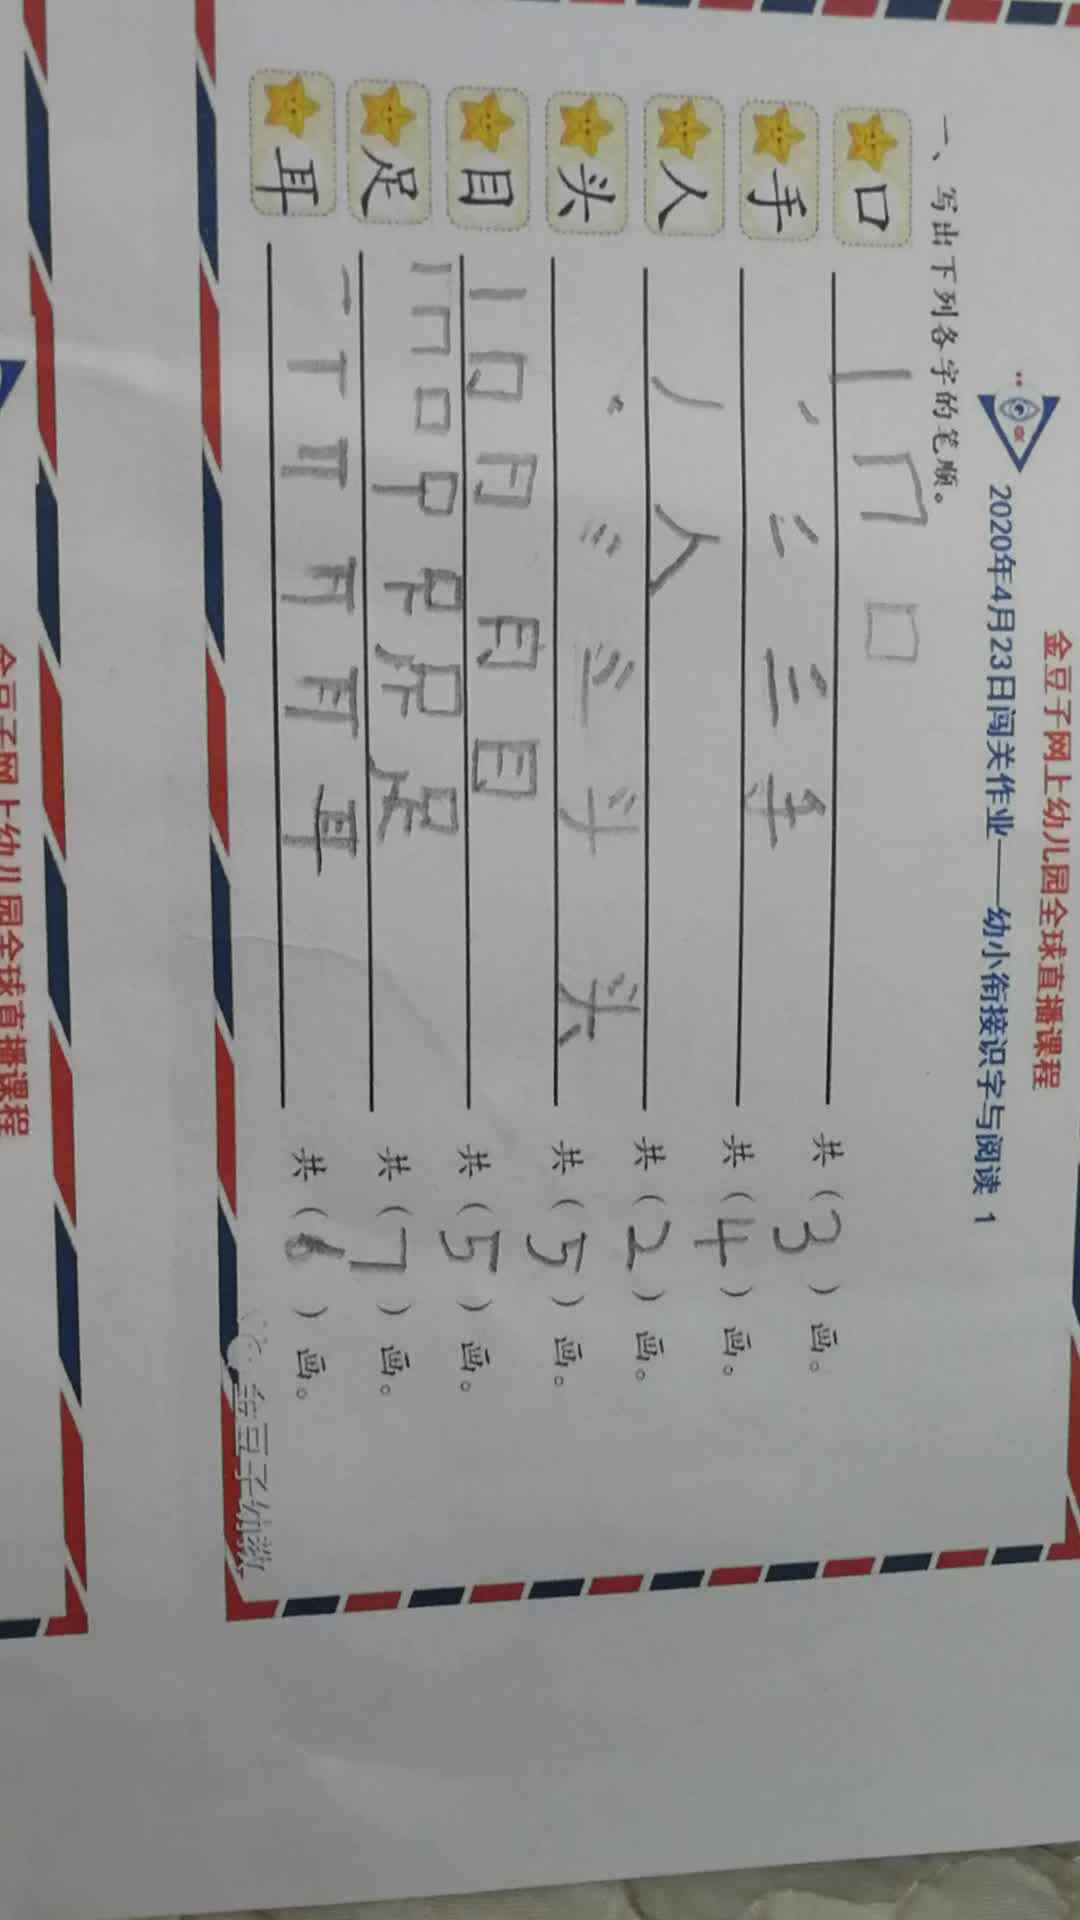 金豆子网上幼儿园全球直播课程
2020年4月23日闯关作业——幼小衔接识字与阅读 1
一、写出下列各字的笔顺。
口 丨 冂 口 共（3）画。
手 共（4）画。
人 丿 人 共（2）画。
头 丶 头 共（5）画。
目 丨 冂 月 目 共（5）画。
足 丨 冂 口 足 共（7）画。
耳 一 丅 耳 共（6）画。
金豆子幼教
金豆子网上幼儿园全球直播课程